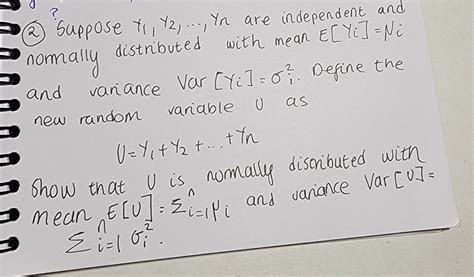 ?
② Suppose Y₁, Y₂, ..., Yn are independent and
normally distributed with mean E[Yi]=μi
and variance Var [Yi]=σᵢ². Define the
new random variable U as
U=Y₁+Y₂+...+Yn
Show that U is normally disributed with
mean E[U]=Σⁿi=1 μi and variance Var[U]=
Σⁿi=1 σᵢ².